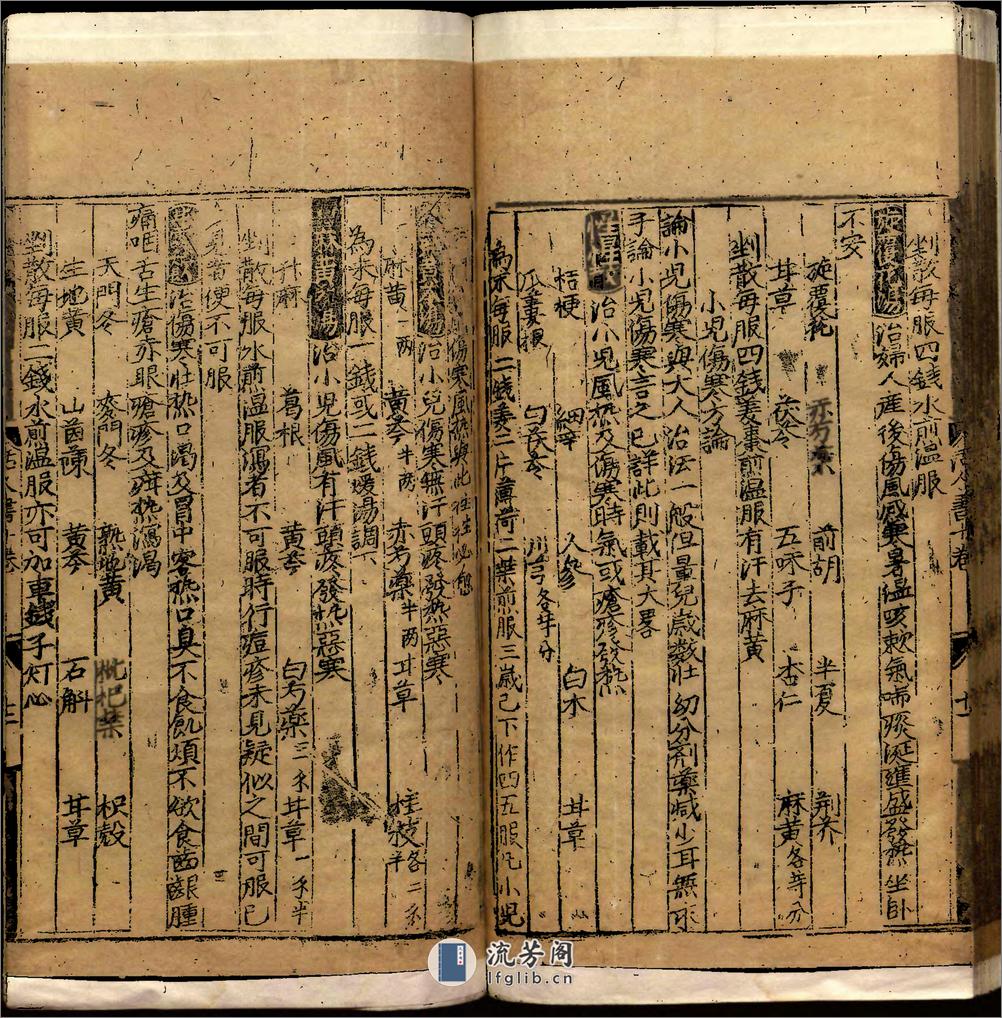 剉散每服四錢水煎溫服
旋覆花湯 治婦人産後傷風感寒暑溫咳嗽氣喘痰涎壅盛發熱坐卧
不安
旋覆花 赤芍藥 前胡 半夏 荆芥
甘草 茯苓 五味子 杏仁 麻黃各等分
剉散每服四錢姜棗煎溫服有汗去麻黃
小兒傷寒方論
論小兒傷寒與大人治法一般但量兒歲數壯幼分劑藥減少耳無
手論小兒傷寒言之已詳此則載其大畧
惺惺散 治小兒風熱及傷寒時氣或瘡疹發熱
桔梗 細辛 人參 白术 甘草
瓜蔞根 白茯苓 川芎各等分
為末每服二錢姜二片薄荷二葉煎服三歲已下作四五服凡小兒
傷寒風熱與此
治小兒傷寒無汗頭疼發熱惡寒
麻黃一兩 黃芩半兩 赤芍藥半兩 甘草 桂枝各半
為末每服一錢或二錢煖湯調下
治小兒傷風有汗頭疼發熱惡寒
升麻 葛根 黃芩 白芍藥 甘草
剉散每服水煎溫服瀉者不可服時行痘疹未見疑似之間可服已
便不可服
治傷寒壯熱口渴及胃中客熱口臭不食飢煩不欲食齒齦腫
痛咽舌生瘡赤眼瘡疹及臍熱瀉渴
天門冬 麥門冬 熟地黃 枇杷葉 枳殼
生地黃 山茵蔯 黃芩 石斛 甘草
剉散每服二錢水煎溫服亦可加車錢子灯心
流芳阁
lfglib.cn